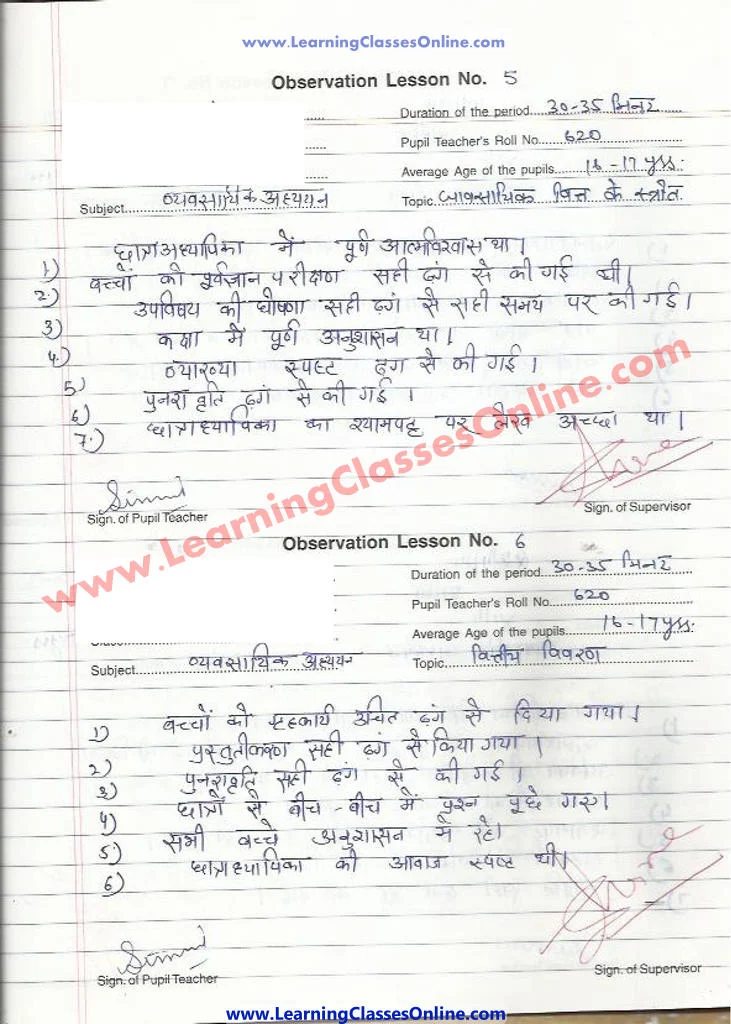 www.LearningClassesOnline.com
Observation Lesson No. 5
Duration of the period 30-35 मिनट
Pupil Teacher's Roll No. 620
Average Age of the pupils 16-17 yrs.
Subject व्यवसायिक अध्ययन Topic व्यावसायिक वित्त के स्त्रौत
1) छात्रअध्यापिका में पूर्ण आत्मविश्वास था।
2) बच्चों की पूर्वज्ञान परीक्षण सही ढ़ंग से की गई थी।
3) उपविषय की घोषणा सही ढ़ंग से सही समय पर की गई।
4) कक्षा में पूर्ण अनुशासन था।
5) व्याख्या स्पष्ट ढ़ंग से की गई।
6) पुनरावृति ढ़ंग से की गई।
7) छात्राध्यापिका का श्यामपट्ट पर लेख अच्छा था।
www.LearningClassesOnline.com
Sign. of Pupil Teacher Sign. of Supervisor
Observation Lesson No. 6
Duration of the period 30-35 मिनट
Pupil Teacher's Roll No. 620
Average Age of the pupils 16-17 yrs.
Subject व्यवसायिक अध्ययन Topic वित्तीय विवरण
1) बच्चों को गृहकार्य उचित ढ़ंग से दिया गया।
2) प्रस्तुतीकरण सही ढ़ंग से किया गया।
3) पुनरावृति सही ढ़ंग से की गई।
4) छात्रों से बीच-बीच में प्रश्न पूछे गए।
5) सभी बच्चें अनुशासन में रहे।
6) छात्राध्यापिका की आवाज स्पष्ट थी।
Sign. of Pupil Teacher Sign. of Supervisor
www.LearningClassesOnline.com